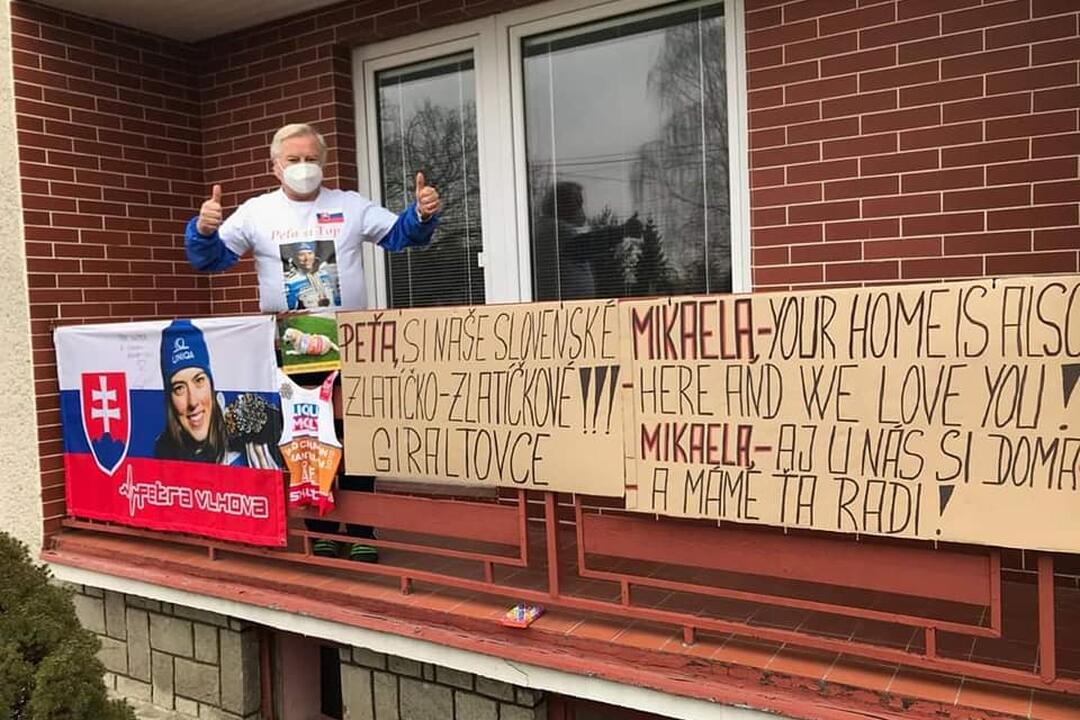 Peťa si Top
UNIQA
Petra VLHOVA
LIQUI
MOLY
PEŤA, SI NAŠE SLOVENSKÉ
ZLATÍČKO-ZLATÍČKOVÉ!!!
GIRALTOVCE
MIKAELA,-YOUR HOME IS AlSO
HERE AND WE LOVE YOU!
MIKAELA,- AJ U NÁS SI DOMA
A MÁME ŤA RADI!